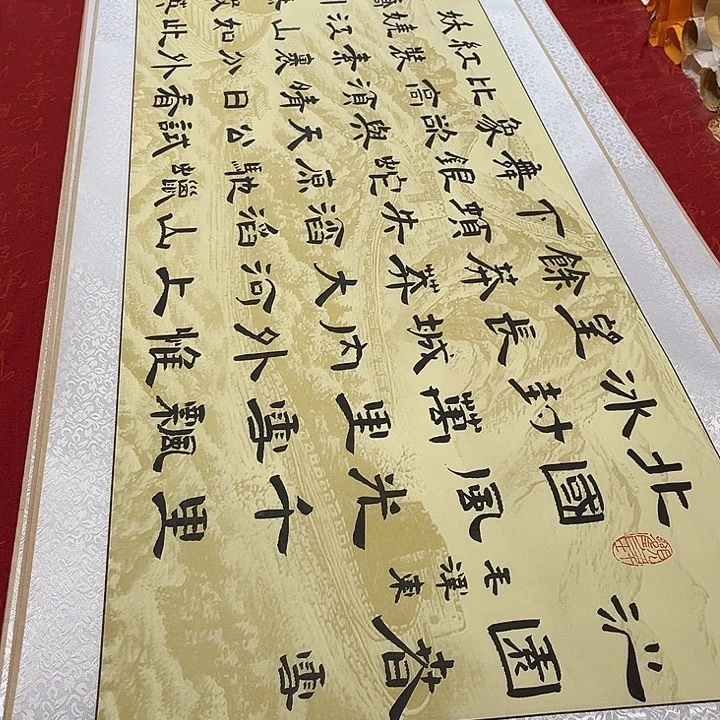 沁園春雪
毛澤東
北國風光千里
冰封萬里雪飄
望長城內外惟
餘莽莽大河上
下頓失滔滔山
舞銀蛇原馳蠟
象欲與天公試
比高須晴日看
紅裝素裹分外
妖嬈江山如此
英